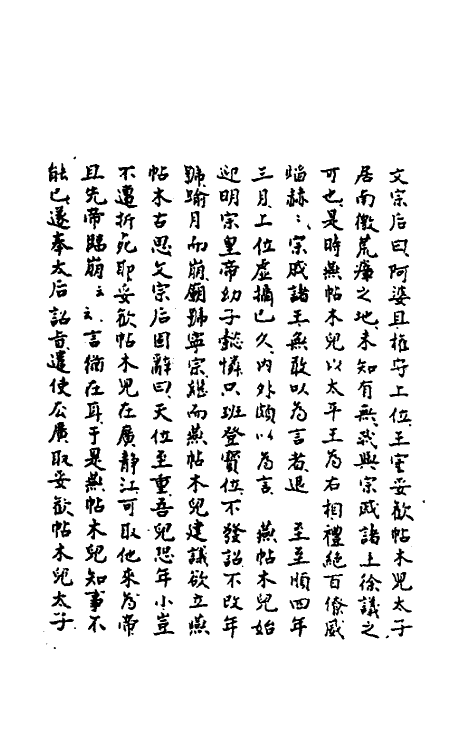 文宗后曰阿婆且權守上位王室妥歡帖木兒太子
居南徼荒瘴之地未知有無我與宗戚諸王徐議之
可也是時燕帖木兒以太平王為右相禮絕百僚威
焰赫〻宗戚諸王無敢以為言者退 至至順四年
三月上位虛攝已久內外頗以為言 燕帖木兒始
迎明宗皇帝幼子懿憐只班登寶位不發詔不改年
號踰月而崩廟號寧宗繼而燕帖木兒建議欲立燕
帖木古思文宗后固辭曰天位至重吾兒恐年小豈
不遭折死耶妥歡帖木兒在廣靜江可取他來為帝
且先帝臨崩云〻言猶在耳于是燕帖木兒知事不
能已遂奉太后詔旨遣使去廣取妥歡帖木兒太子